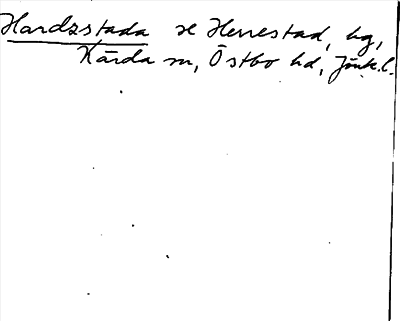 Hardzstada se Herrestad, hg,
Kärda sn, Östbo hd, Jönk.l.